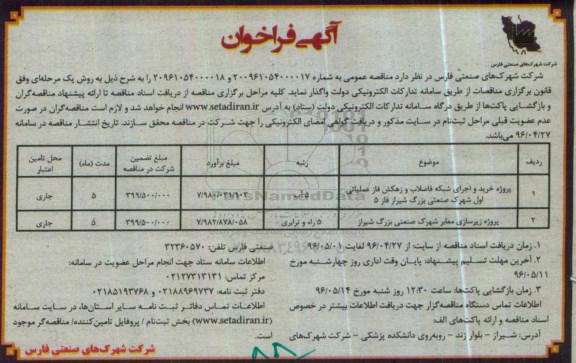 آگهی فراخوان
شرکت شهرک‌های صنعتی فارس
شرکت شهرک‌های صنعتی فارس در نظر دارد مناقصه عمومی به شماره ۲۰۰۹۶۱۰۵۴۰۰۰۰۱۷ و ۲۰۹۶۱۰۵۴۰۰۰۰۱۸ را به شرح ذیل به روش یک مرحله‌ای وفق
قانون برگزاری مناقصات از طریق سامانه تدارکات الکترونیکی دولت واگذار نماید. کلیه مراحل برگزاری مناقصه از دریافت اسناد مناقصه تا ارائه پیشنهاد مناقصه‌گران
و بازگشایی پاکت‌ها از طریق درگاه سامانه تدارکات الکترونیکی دولت (ستاد) به آدرس www.setadiran.ir انجام خواهد شد و لازم است مناقصه‌گران در صورت
عدم عضویت قبلی مراحل ثبت‌نام در سایت مذکور و دریافت گواهی امضای الکترونیکی را جهت شرکت در مناقصه محقق سازند. تاریخ انتشار مناقصه در سامانه
۹۶/۰۴/۲۷ می‌باشد.
ردیف موضوع رتبه مبلغ برآورد مبلغ تضمین شرکت در مناقصه مدت (ماه) محل تامین اعتبار
۱ پروژه خرید و اجرای شبکه فاضلاب و زهکش فاز عملیاتی اول شهرک صنعتی بزرگ شیراز فاز ۵ ۵ آب ۷/۹۸۰/۰۳۱/۱۰۳ ۳۹۹/۵۰۰/۰۰۰ ۵ جاری
۲ پروژه زیرسازی معابر شهرک صنعتی بزرگ شیراز ۵ راه و ترابری ۷/۹۸۲/۸۷۸/۰۵۸ ۳۹۹/۵۰۰/۰۰۰ ۵ جاری
۱. زمان دریافت اسناد مناقصه از سایت از ۹۶/۰۴/۲۷ لغایت ۹۶/۰۵/۰۱
۲. آخرین مهلت تسلیم پیشنهاد: پایان وقت اداری روز چهارشنبه مورخ
۹۶/۰۵/۱۱
۳. زمان بازگشایی پاکت‌ها: ساعت ۱۲:۳۰ روز شنبه مورخ ۹۶/۰۵/۱۴
اطلاعات تماس دستگاه مناقصه‌گزار جهت دریافت اطلاعات بیشتر در خصوص
اسناد مناقصه و ارائه پاکت‌های الف
آدرس: شیراز – بلوار زند – روبه‌روی دانشکده پزشکی – شرکت شهرک‌های
صنعتی فارس تلفن: ۳۲۳۶۰۵۷۰
اطلاعات سامانه ستاد جهت انجام مراحل عضویت در سامانه:
مرکز تماس: ۰۲۱۲۷۳۱۳۱۳۱
دفتر ثبت نامه: ۰۲۱۸۸۹۶۹۷۳۷ و ۰۲۱۸۵۱۹۳۷۶۸
اطلاعات تماس دفاتر ثبت نامه سایر استان‌ها، در سایت سامانه
(www.setadiran.ir) بخش ثبت‌نام / پروفایل تامین‌کننده/ مناقصه‌گر موجود
است.
شرکت شهرک های صنعتی فارس